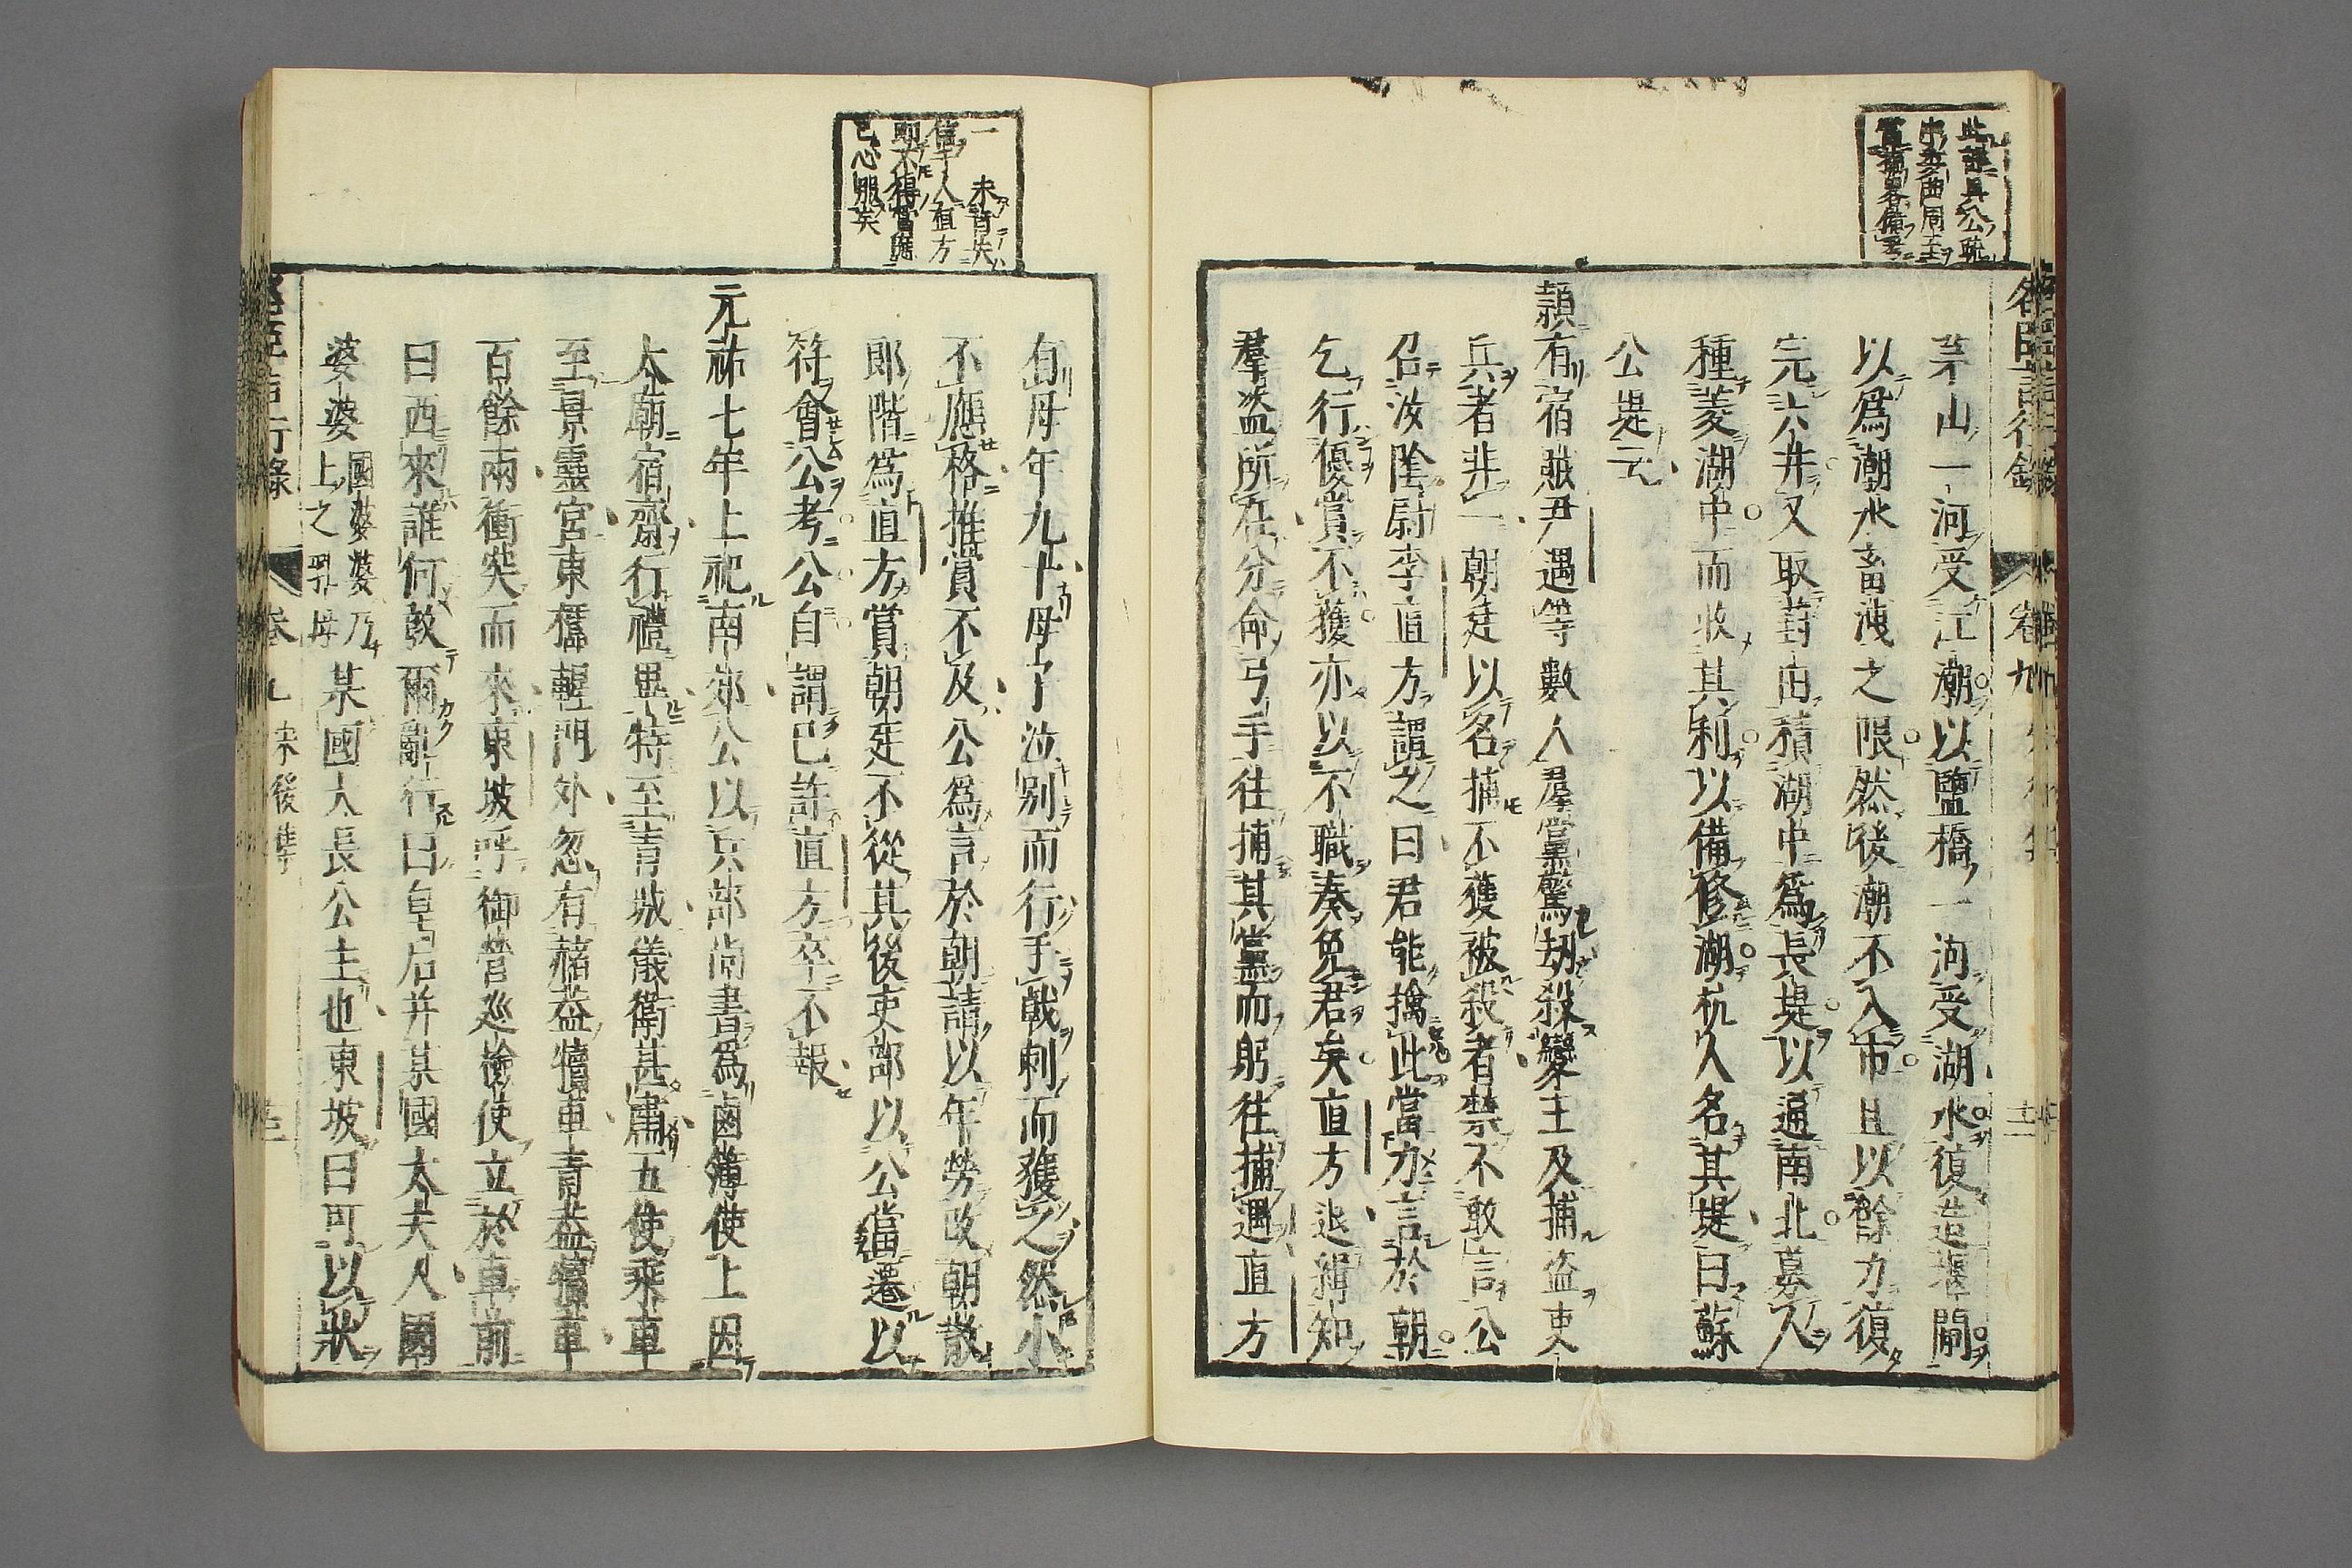 茅山一河受江潮以鹽橋一河受湖水復造堰閘
以爲潮水畜洩之限然後潮不入市且以餘力復
完六井又取葑田積湖中爲長堤以通南北募人
種菱湖中而收其利以備修湖杭人名其堤曰蘇
公堤云
頴有宿賊尹遇等數人羣黨驚刼殺變主及捕盗吏
兵者非一朝廷以名捕不獲被殺者禁不敢言公
召汝陰尉李直方謂之曰君能擒此當力言於朝
乞行優賞不獲亦以不職奏免君矣直方退緝知
羣盗所在分命弓手往捕其黨而躬往捕遇直方
有母年九十母子泣别而行手戟刺而獲之然小
不應格推賞不及公爲言於朝請以年勞改朝散
郎階爲直方賞朝廷不從其後吏部以公當遷以
符會公考公自謂已許直方卒不報
元祐七年上祀南郊公以兵部尚書爲鹵簿使上因
太廟宿齋行禮畢特至青城儀衛甚肅五使乘車
至景靈宮東櫺輕門外忽有赭盖犢車青盖犢車
百餘兩衝突而來東坡呼御營巡檢使立於車前
曰西來誰何敢爾亂行曰皇后并某國太夫人國
婆婆國婆婆乃上之乳母某國大長公主也東坡曰可以狀
名臣言行錄
卷九
名臣言行錄
卷九
宋後集